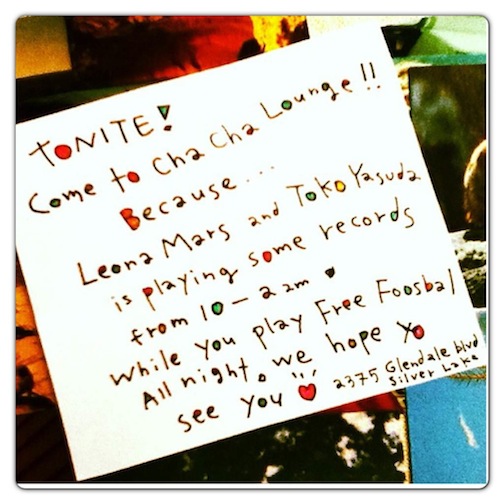 TONITE!
Come to Cha Cha Lounge!!
Because...
Leona Mars and Toko Yasuda
is playing some records
from 10-2am
while you play Free Foosbal
All night. we hope yo
see you ♥
2375 Glendale blvd
Silver Lake